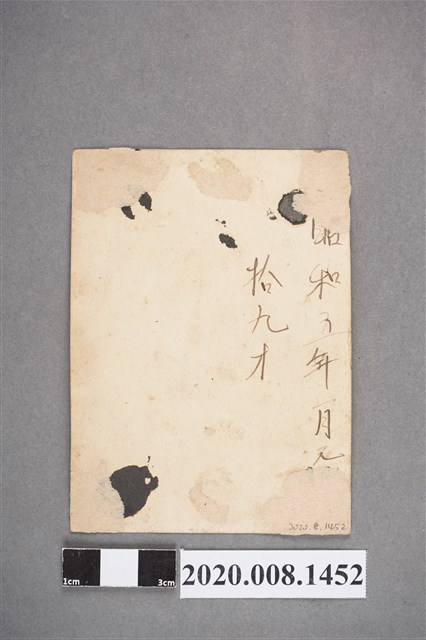 昭和五年一月元
拾九才
2020.008.1452
1cm
3cm
2020.008.1452